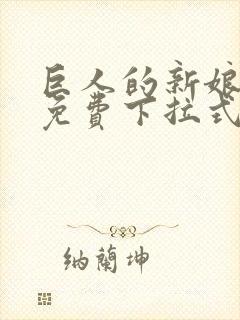 巨人的新娘
免费下拉式
纳蘭坤